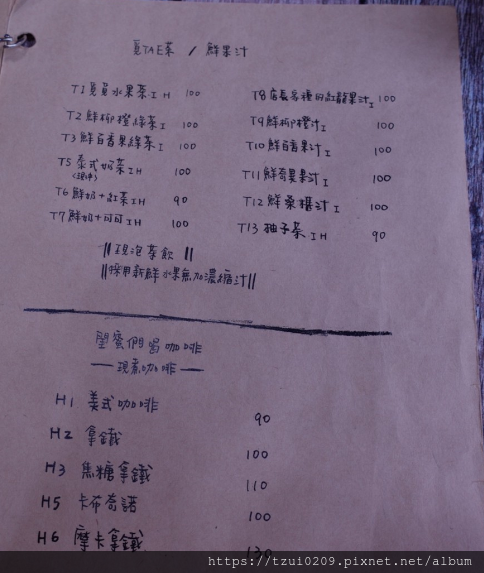 覓TAE茶 / 鮮果汁
T1 覓覓水果茶.I H 100
T2 鮮柳橙綠茶I 100
T3 鮮百香果綠茶I 100
T5 泰式奶茶IH 100
(現沖)
T6 鮮奶+紅茶IH 90
T7 鮮奶+可可IH 100
T8 店長多種的紅龍果汁I 100
T9 鮮柳橙汁I 100
T10 鮮百香果汁I 100
T11 鮮奇異果汁I 100
T12 鮮桑椹汁I 100
T13 柚子茶 IH 90
||現泡茶飲||
||採用新鮮水果無加濃縮汁||
閨蜜們喝咖啡
—現煮咖啡—
H1 美式咖啡 90
H2 拿鐵 100
H3 焦糖拿鐵 110
H5 卡布奇諾 100
H6 摩卡拿鐵 130
https://tzui0209.pixnet.net/album